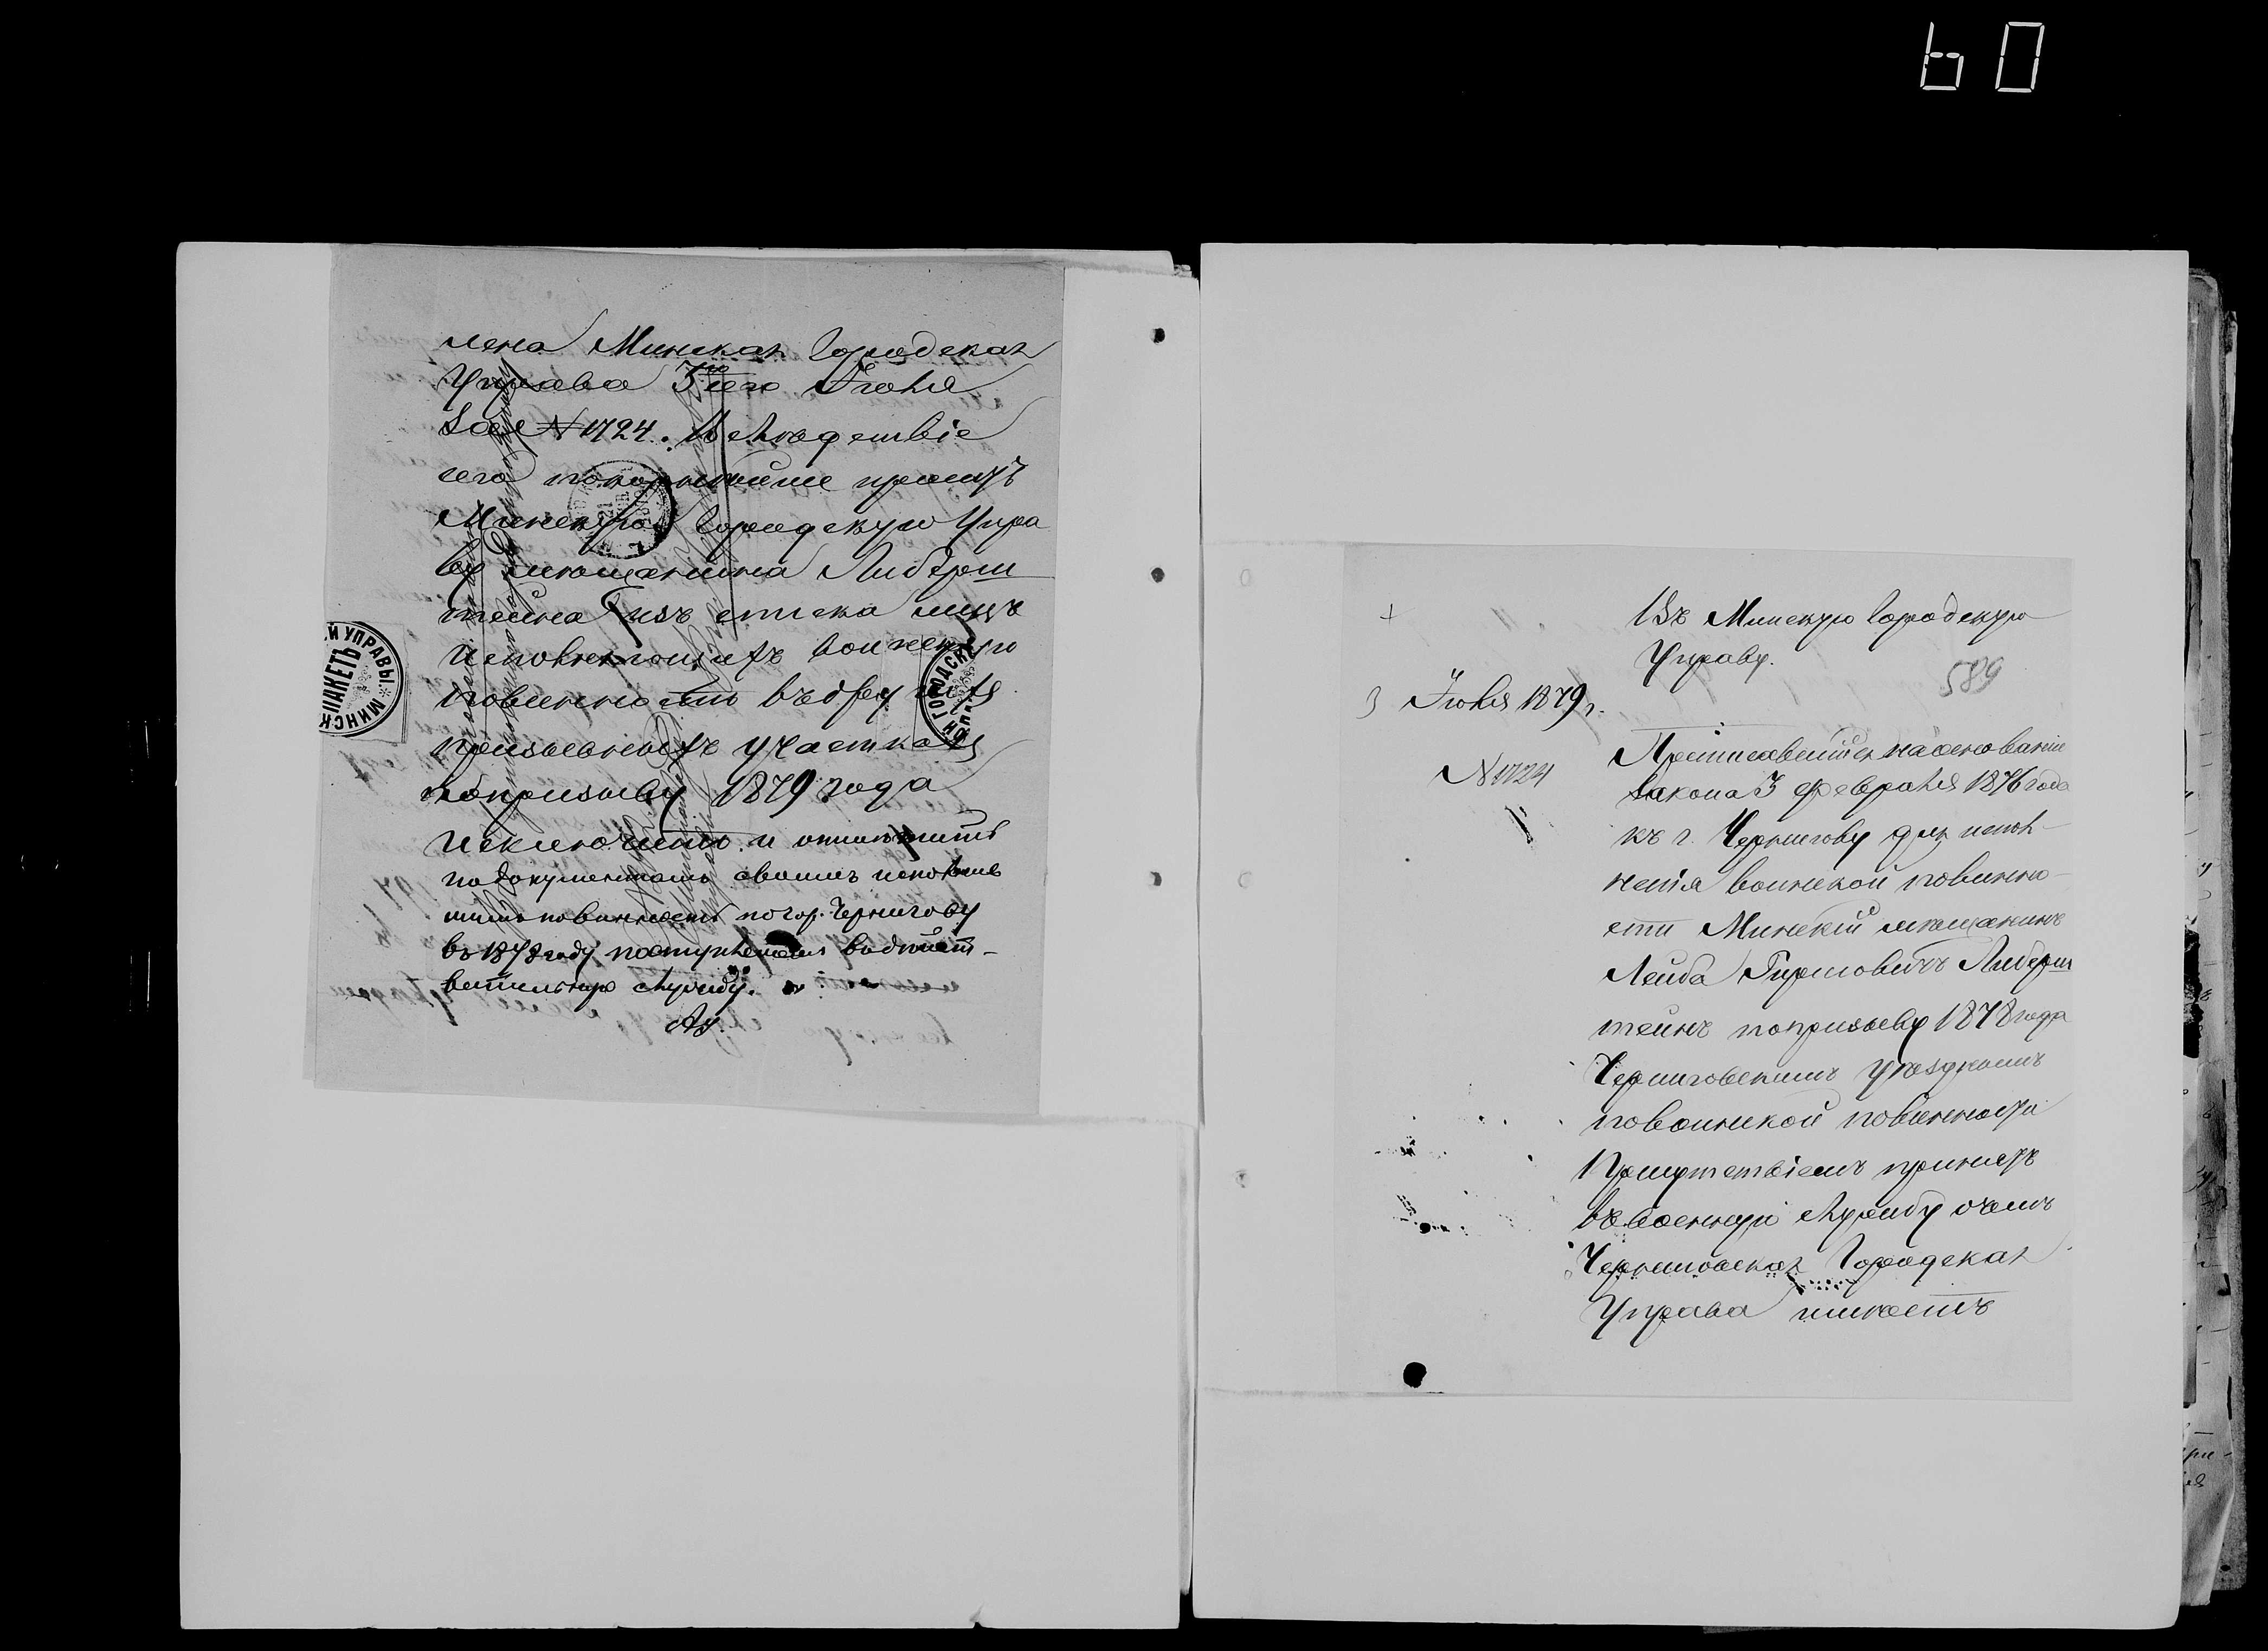 60
лена Минская Городская
Управа 3го сего Іюля
за № 1724. Вслѣдствіе
сего покорнѣйше проситъ
Минскую Городскую Упра
ву мѣщанина Либерш
тейна изъ списка лицъ
исполняющихъ воинскую
повинность въ
призывныхъ участкахъ
по призыву 1879 года
исключить и отмѣтить
по документамъ своимъ исполнив
шимъ повинность по гор. Чернигову
въ 1878 году поступленіемъ въ дѣйст-
вительную службу.
Й УПРАВЫ. * МИНСК
ПАКЕТЪ
ГОРОДСК
Въ Минскую Городскую
Управу.
589
3 Іюля 1879 г.
№ 1724
Приписавшійся на основаніи
закона 3 февраля 1876 года
къ г. Чернигову для испол-
ненія воинской повинно-
сти Минскій мѣщанинъ
Лейба Гиршовичъ Либерш
тейнъ по призыву 1878 года
Черниговскимъ уѣзднымъ
по воинской повинности
Присутствіемъ принятъ
въ военную службу о чемъ
Черниговская Городская
Управа